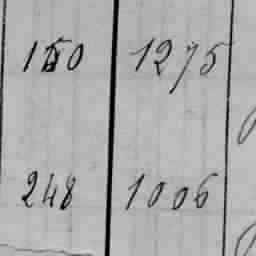 150 1275
248 1006